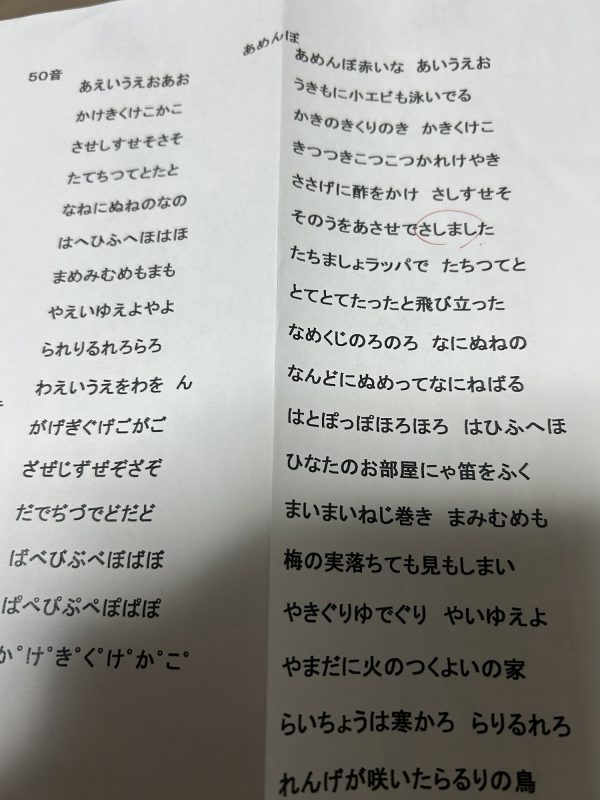 50音
あえいうえおあお
かけきくけこかこ
させしすせそさそ
たてちつてとたと
なねにぬねのなの
はへひふへほはほ
まめみむめもまも
やえいゆえよやよ
られりるれろらろ
わえいうえをわを ん
がげぎぐげごがご
ざぜじずぜぞざぞ
だでぢづでどだど
ばべびぶべぼばぼ
ぱぺぴぷぺぽぱぽ
か°け°き°く°け°か°こ°
あめんぼ
あめんぼ赤いな あいうえお
うきもに小エビも泳いでる
かきのきくりのき かきくけこ
きつつきこつこつかれけやき
ささげに酢をかけ さしすせそ
そのうをあさせでさしました
たちましょラッパで たちつてと
とてとてたったと飛び立った
なめくじのろのろ なにぬねの
なんどにぬめってなにねばる
はとぽっぽほろほろ はひふへほ
ひなたのお部屋にゃ笛をふく
まいまいねじ巻き まみむめも
梅の実落ちても見もしまい
やきぐりゆでぐり やいゆえよ
やまだに火のつくよいの家
らいちょうは寒かろ らりるれろ
れんげが咲いたらるりの鳥